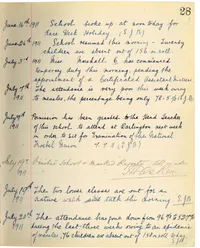 28
June 16th 1911 School broke up at noon today for
Race Week Holiday (E J B)
June 26th 1911 School resumed this morning - Twenty
children are absent out of 136 in all.
July 3rd 1911 Miss Marshall C. has commenced
temporary duty this morning, pending the
appointment of a Certificated Assistant Mistress
July 7th 1911 The attendance is very low this week owing
to measles, the percentage being only 78.8 (E J B)
July 9th 1911 Permission has been granted to the Head Teacher
of this school to attend at Darlington next week
in order to Set an Examination of the National
Froebel Union E J B
July 19th 1911 Visited School
July 19th 1911 The two lower classes are out for a
nature walk this morning E J B
July 20th 1911 The attendance has gone down from 96.9 to
during the last three weeks owing to an epidemic
of measles, 76 children are absent out of 131 on roll today E J B